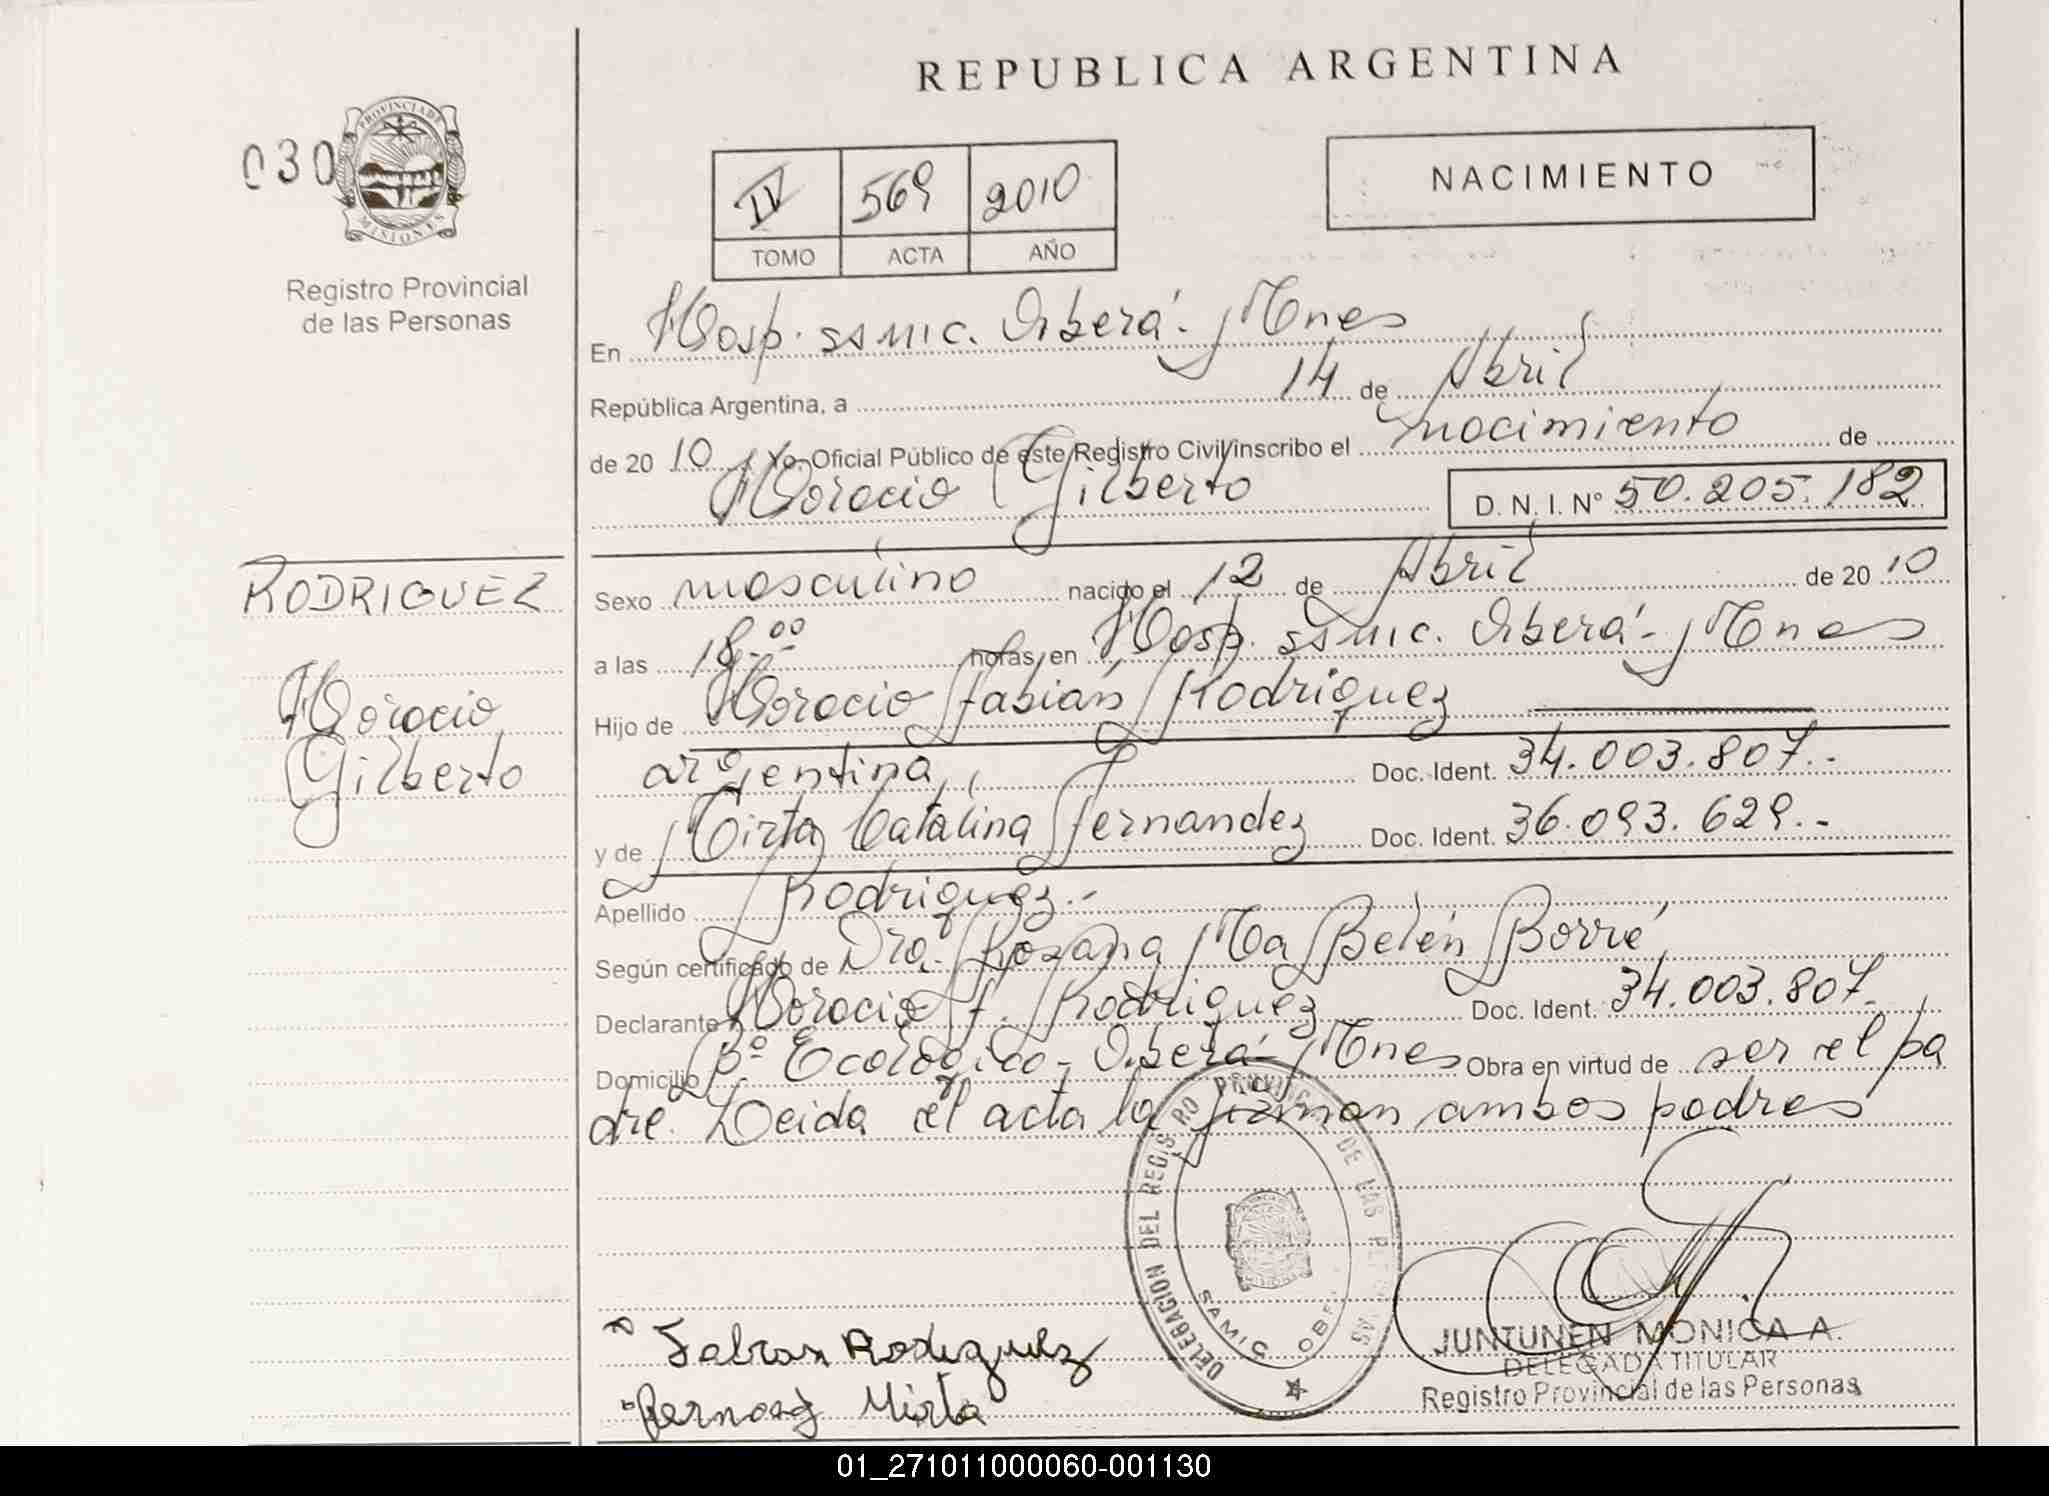 REPUBLICA ARGENTINA
030
PROVINCIA DE
MISIONES
Registro Provincial
de las Personas
IV 569 2010
TOMO ACTA AÑO
NACIMIENTO
En Hosp. SAMIC. Oberá - Mnes
República Argentina, a 14 de Abril
de 20 10 Yo, Oficial Público de este Registro Civil inscribo el nacimiento de
Horacio Gilberto D. N. I. N° 50.205.182
RODRIGUEZ
Horacio
Gilberto
Sexo masculino nacido el 12 de Abril de 20 10
a las 18.00 horas, en Hosp. SAMIC. Oberá - Mnes
Hijo de Horacio Fabián Rodriguez
argentina Doc. Ident. 34.003.807.-
y de Mirta Catalina Fernandez Doc. Ident. 36.093.629.-
Apellido Rodriguez.-
Según certificado de Dra. Rosana Ma Belén Borré
Declarante Horacio F. Rodriguez Doc. Ident. 34.003.807.-
Domicilio Bº Ecológico - Oberá - Mnes Obra en virtud de ser el pa
dre. Leida el acta la firman ambos padres
DELEGACION DEL REGISTRO PROVINCIAL DE LAS PERSONAS
SAMIC OBERA
Fabian Rodriguez
Mirta
JUNTUNEN MONICA A.
DELEGADA TITULAR
Registro Provincial de las Personas
01_271011000060-001130